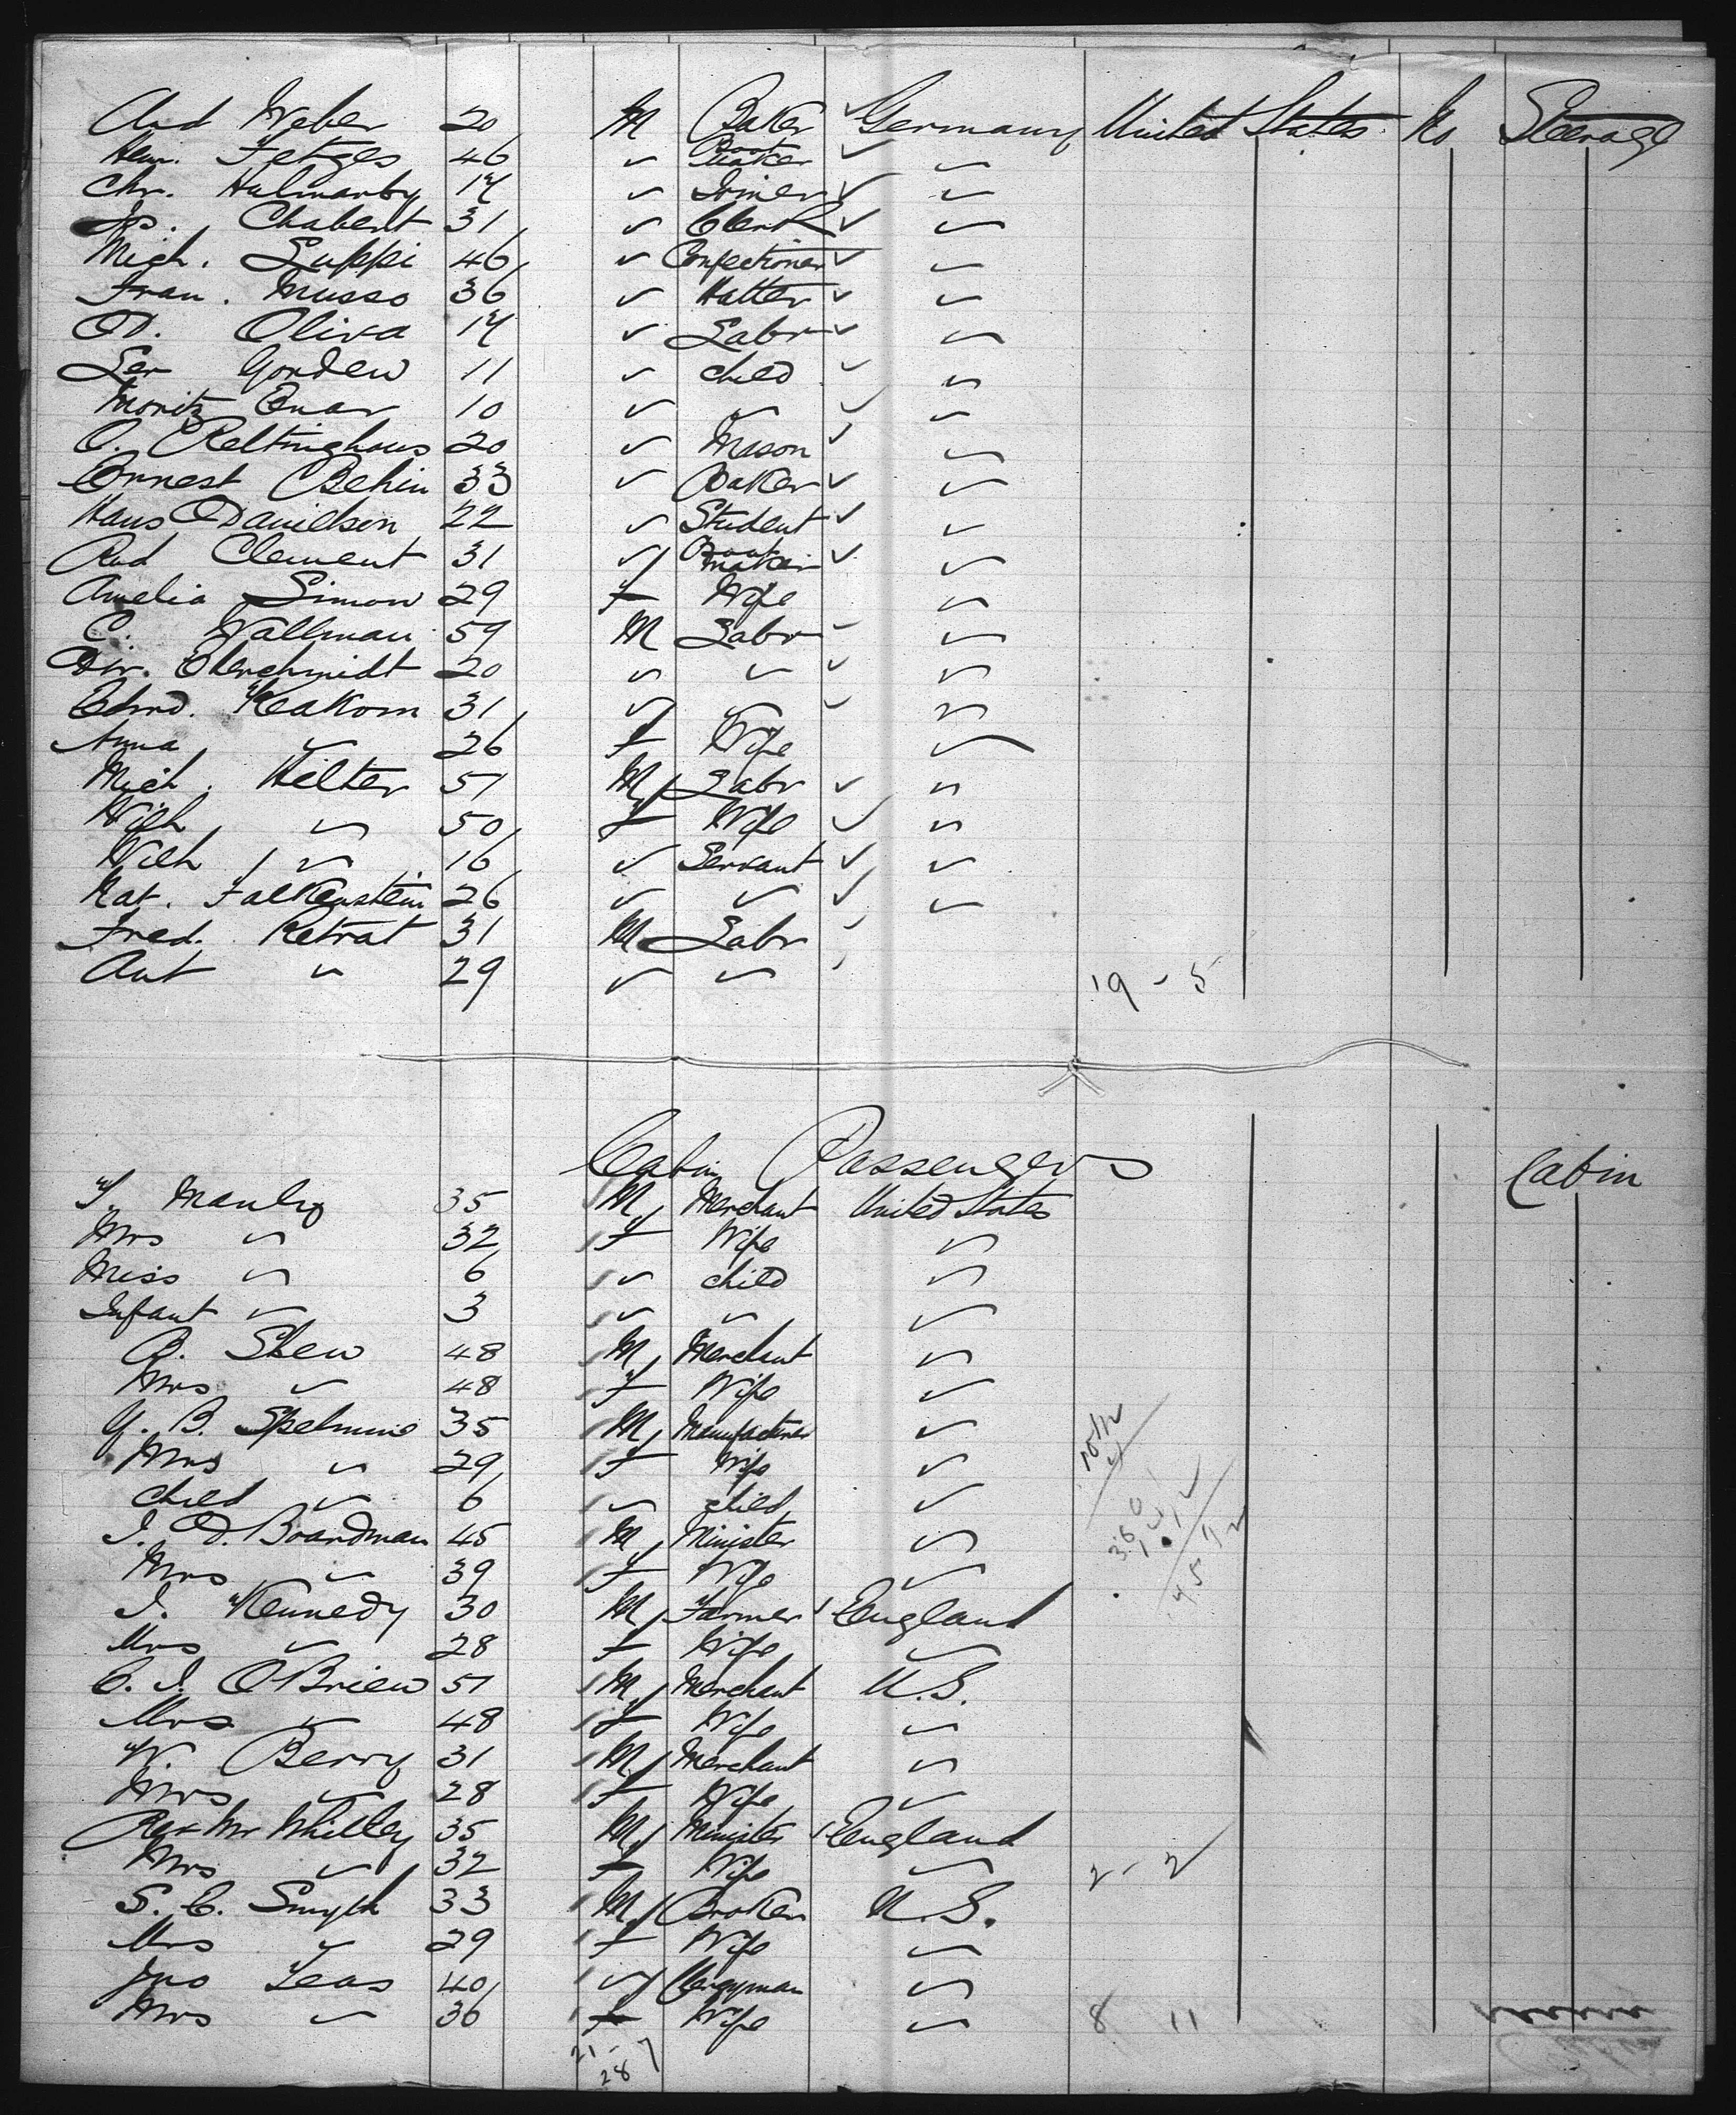 And Weber 20 M Baker ✓ Germany United States No Steerage
Hein. Fetges 46 ✓ Boot Maker ✓ ✓
Chr. Halmanby 17 ✓ Joiner ✓ ✓
Jos. Chabert 31 ✓ Clerk ✓ ✓
Mich. Luppi 46 ✓ Confectioner ✓ ✓
Fran. Musso 36 ✓ Hatter ✓ ✓
D. Oliva 17 ✓ Labr ✓ ✓
Ler Gordew 11 ✓ child ✓ ✓
Moritz 10 ✓ ✓ ✓ ✓
O. Reltinghous 20 ✓ Mason ✓ ✓
Ernest Behin 33 ✓ Baker ✓ ✓
Hans Danielson 22 ✓ Student ✓ ✓
Rud Clement 31 ✓ Boot maker ✓ ✓
Amelia Simon 29 F Wife ✓
C. Wallman 59 M Labr ✓ ✓
Oberchmidt 20 ✓ ✓ ✓ ✓
Edwd. Keakom 31 ✓ ✓ ✓ ✓
Anna ✓ 26 F Wife ✓
Mich. Hilter 51 M Labr ✓ ✓
Wilh ✓ 50 F Wife ✓ ✓
Wilh ✓ 16 ✓ Servant ✓ ✓
Nat. Falkenstein 26 ✓ ✓ ✓ ✓
Fred. Retrat 31 M Labr
Ant ✓ 29 ✓ ✓
19 - 5
Cabin Passengers
Cabin
T. Manly 35 M Merchant United States
Mrs ✓ 32 F Wife ✓
Miss ✓ 6 ✓ child ✓
Infant ✓ 3 ✓ ✓ ✓
B. Shew 48 M Merchant ✓
Mrs ✓ 48 F Wife ✓
G. B. Spelmine 35 M Manufacturer ✓
Mrs ✓ 29 F Wife ✓
Child ✓ 6 ✓ child ✓
I. D. Boardman 45 M Minister ✓
Mrs ✓ 39 F Wife ✓
J. Kennedy 30 M Farmer England
Mrs ✓ 28 F Wife ✓
C. J. O'Brien 51 M Merchant U.S.
Mrs ✓ 48 F Wife ✓
W. Berry 31 M Merchant ✓
Mrs ✓ 28 F Wife ✓
Rev Mr Whitley 35 M Minister England
Mrs ✓ 32 F Wife ✓ 2 - 2
S. C. Smyth 33 M Broker U.S.
Mrs ✓ 29 F Wife ✓
Jno Leas 40 ✓ Clergyman ✓
Mrs ✓ 36 F Wife ✓ 8 11
21 - 7
28